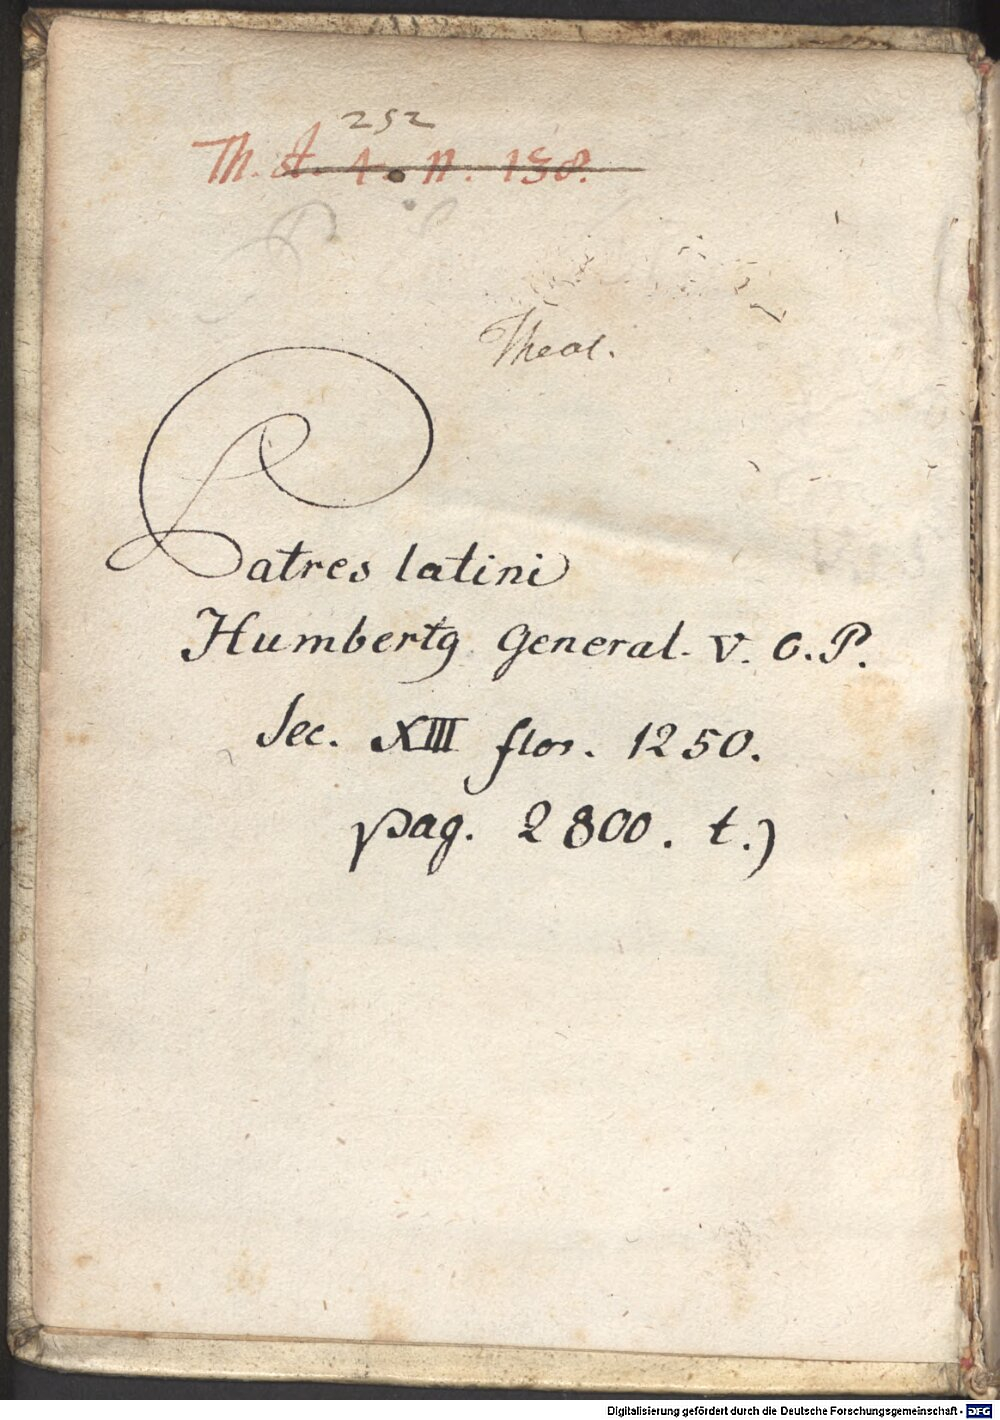 252
Th. st. 4. n. 138.
Theol.
Patres latini
Humbertꝯ General. V. O. P.
Sec. XIII flor. 1250.
pag. 2800. t.)
Digitalisierung gefördert durch die Deutsche Forschungsgemeinschaft - DFG